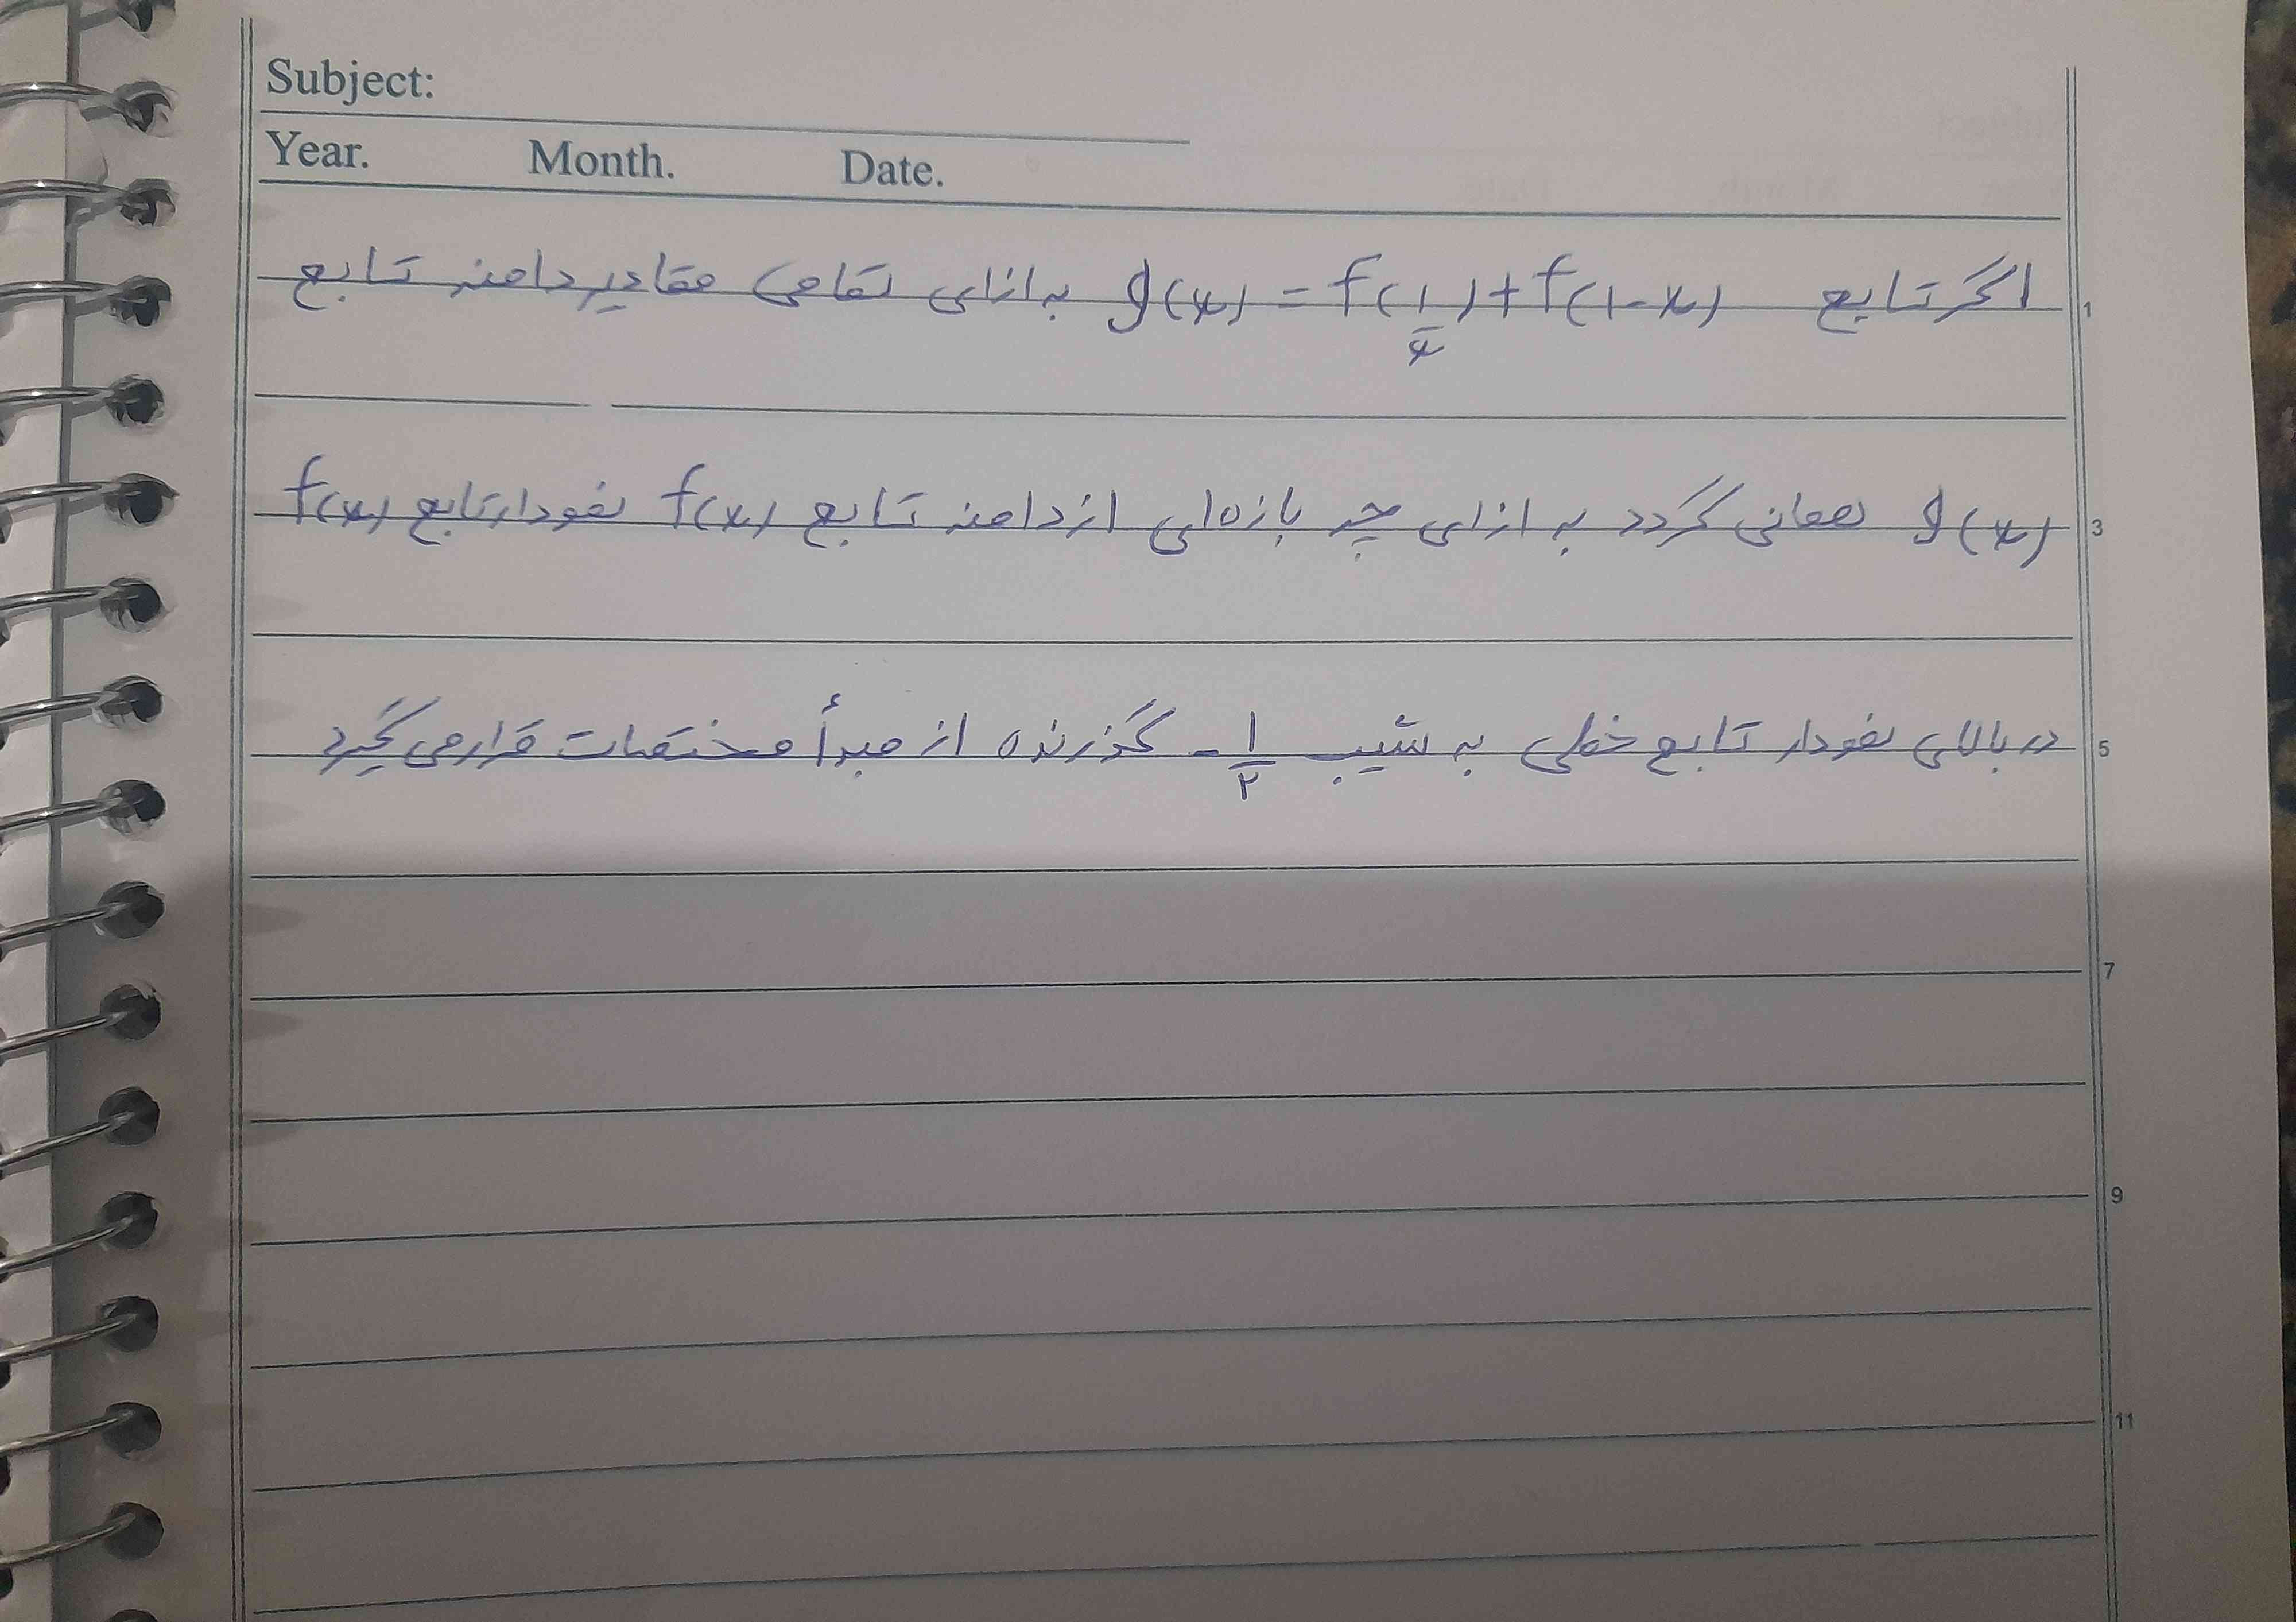 Subject:
Year. Month. Date.
اگر تابع g(x) = f(1/x) + f(1-x) به ازای تمامی مقادیر دامنه تابع
1
g(x) همانی گردد به ازای چه بازه‌ای از دامنه تابع f(x) نمودار تابع f(x)
3
در بالای نمودار تابع خطی به شیب -۱/۲ گذرنده از مبدأ مختصات قرار می‌گیرد
5
7
9
11